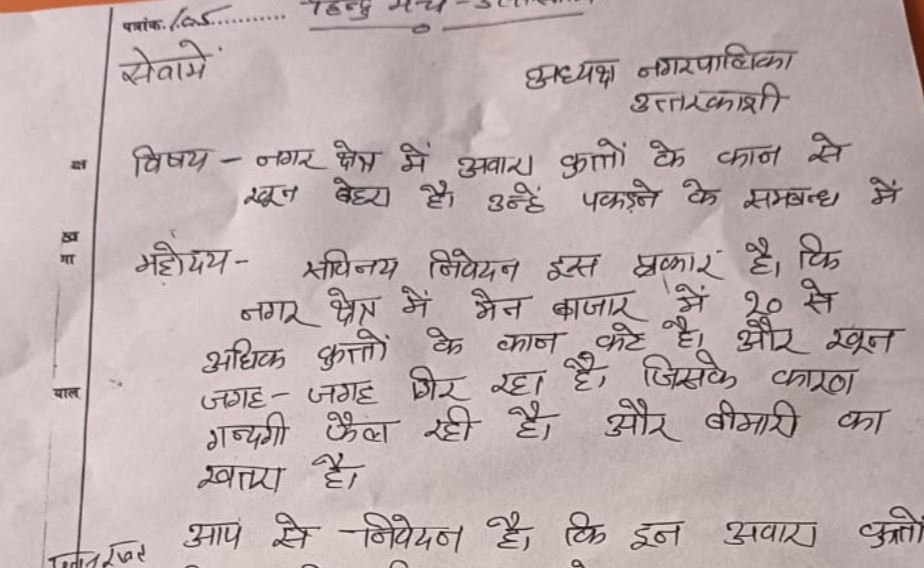 पत्रांक. 105............
सेवामें
अध्यक्ष नगरपालिका
उत्तरकाशी
विषय - नगर क्षेत्र में अवारा कुत्तों के कान से
खून बेहरा है। उन्हें पकड़ने के सम्बन्ध में
महोदय - सविनय निवेदन इस प्रकार है, कि
नगर क्षेत्र में मैन बाजार में २० से
अधिक कुत्तों के कान कटे है। और खून
जगह - जगह गिर रहा है, जिसके कारण
गन्दगी फैल रही है, और बीमारी का
खतरा है,
आप से निवेदन है, कि इन अवारा कुत्तों